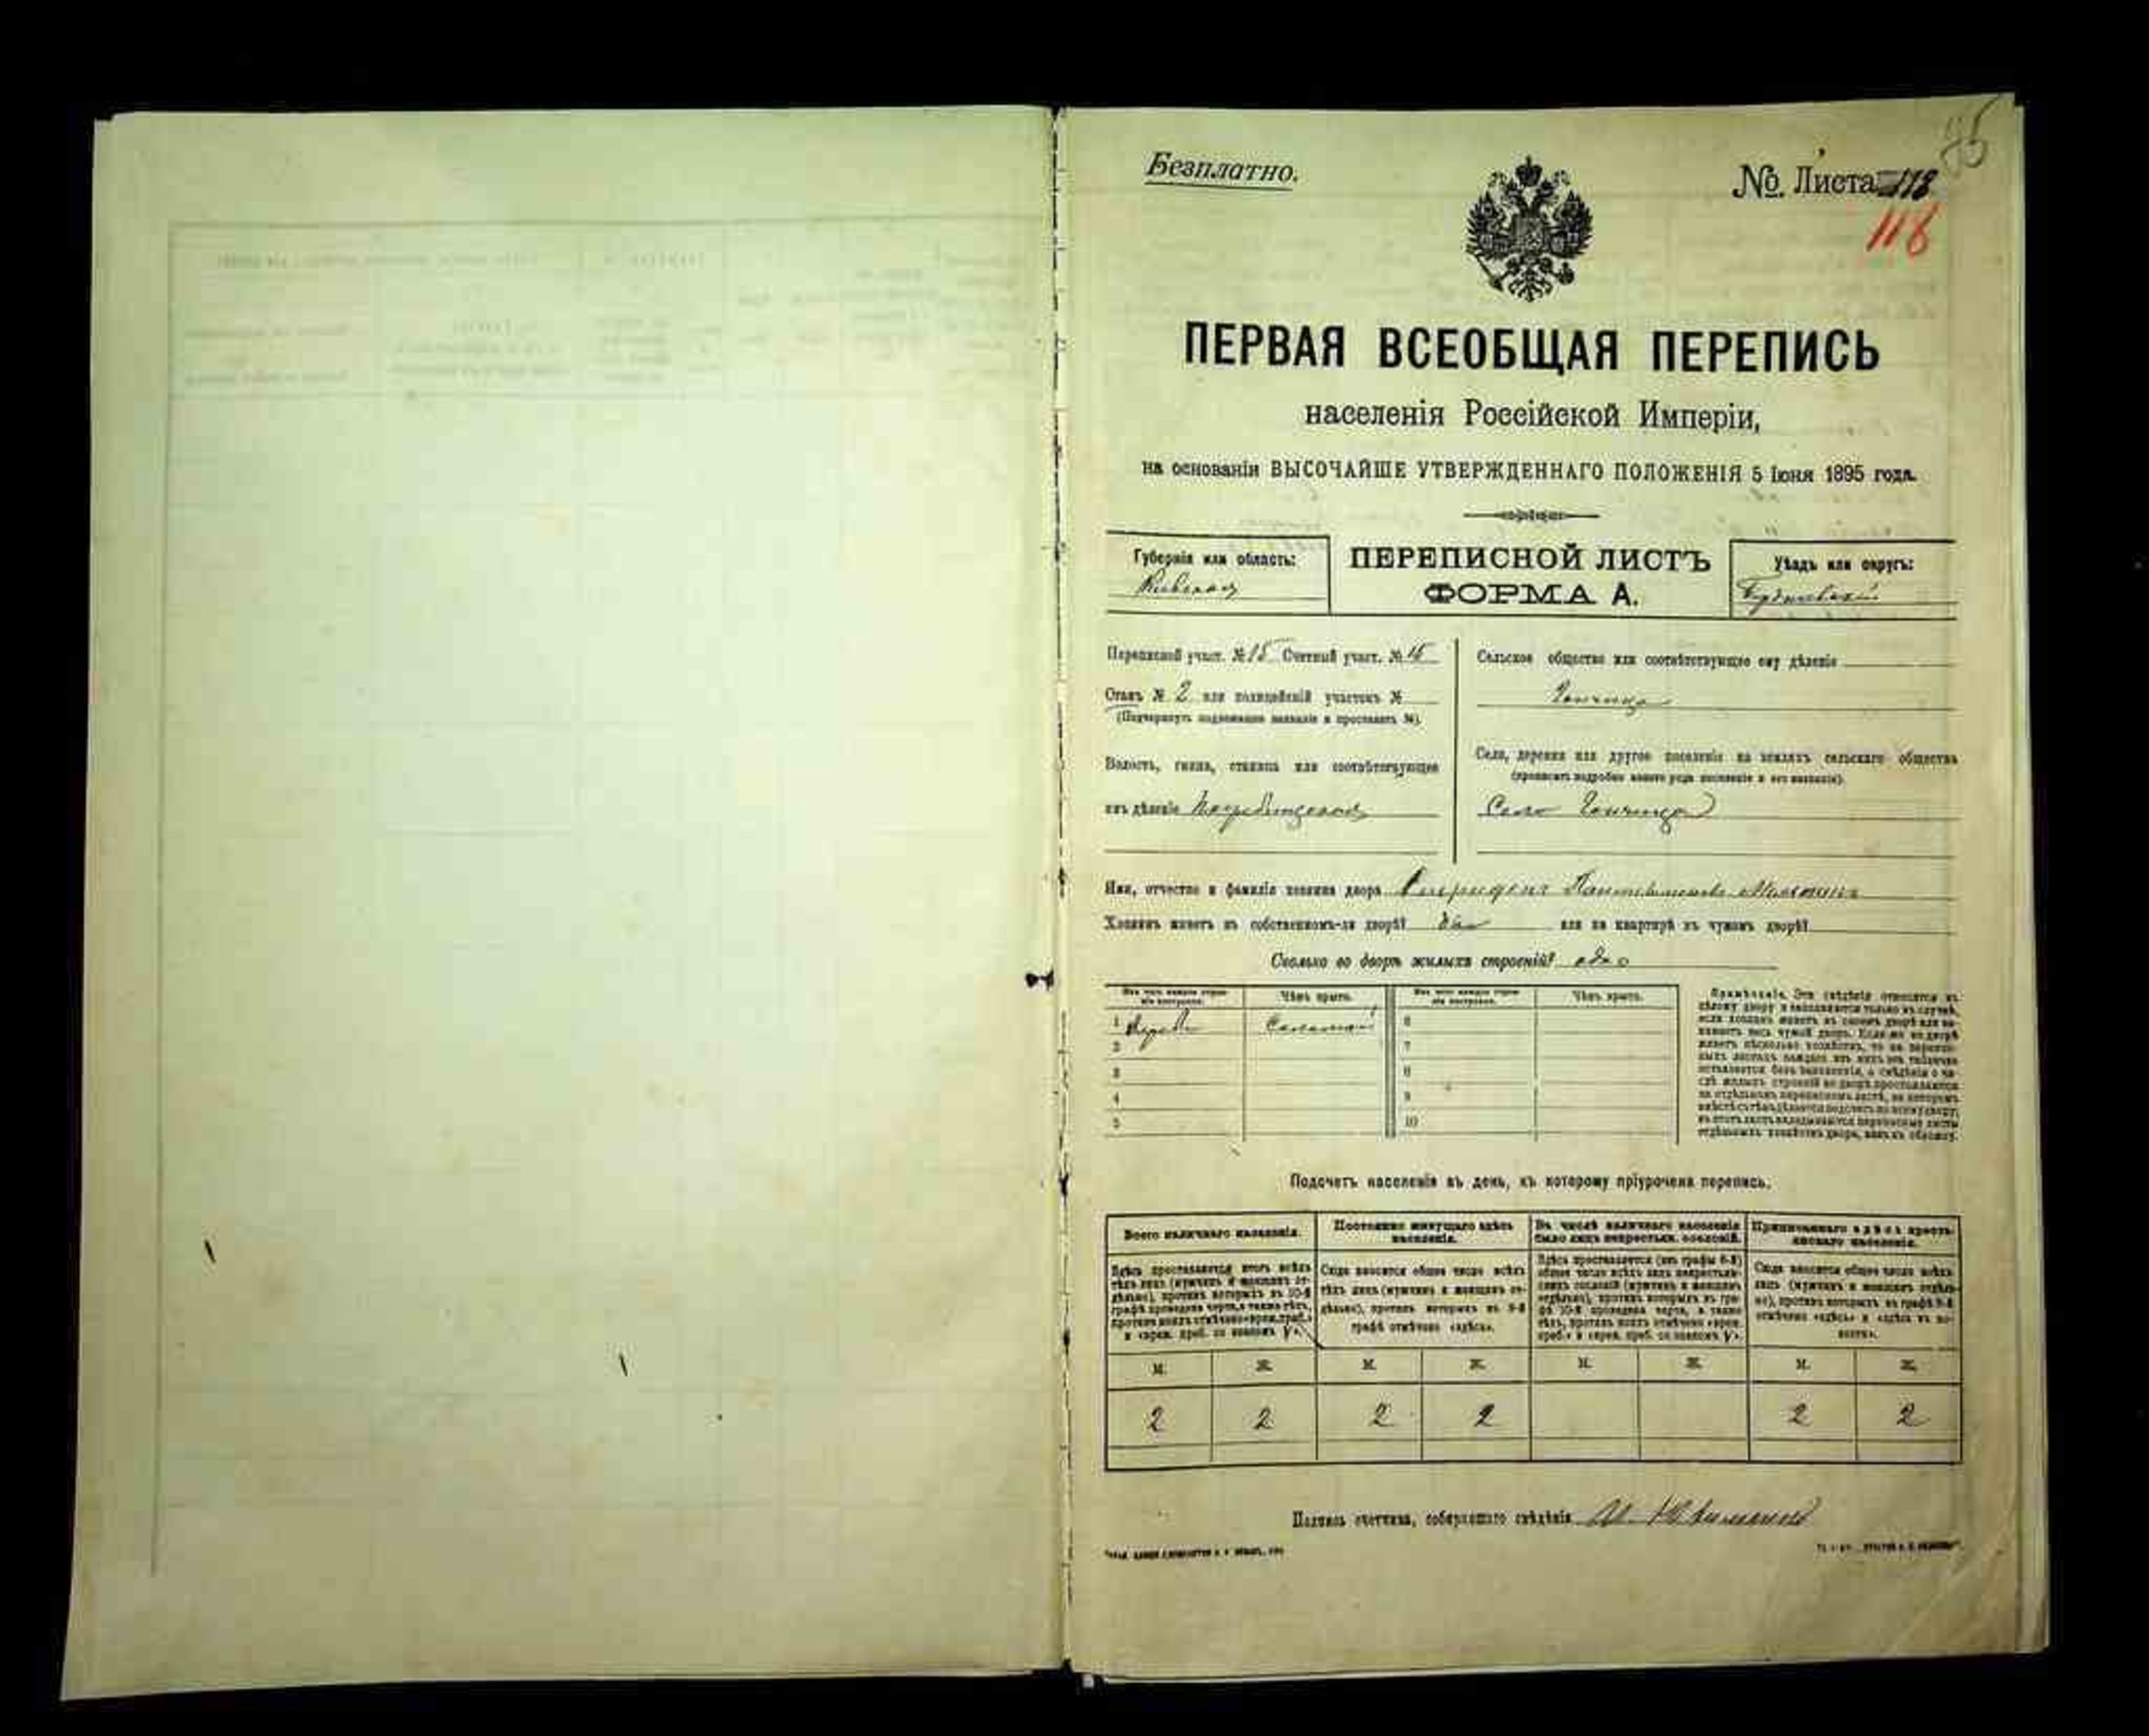 85
Безплатно.
№ Листа 118
118
ПЕРВАЯ ВСЕОБЩАЯ ПЕРЕПИСЬ
населенія Россійской Имперіи,
на основаніи ВЫСОЧАЙШЕ УТВЕРЖДЕННАГО ПОЛОЖЕНІЯ 5 Іюня 1895 года.
Губернія или область:
Кіевская
ПЕРЕПИСНОЙ ЛИСТЪ
ФОРМА А.
Уѣздъ или округъ:
Переписной участ. № 15 Счетный участ. № 15
Станъ № 2 или полицейскій участокъ №
(Подчеркнуть подлежащее названіе и проставить №).
Волость, гмина, станица или соотвѣтствующее
имъ дѣленіе
Сельское общество или соотвѣтствующее ему дѣленіе
Село, деревня или другое поселеніе на земляхъ сельскаго общества
(прописать подробно какого рода поселеніе и его названіе).
Село
Имя, отчество и фамилія хозяина двора Спиридонъ
Хозяинъ живетъ въ собственномъ-ли дворѣ? да или на квартирѣ въ чужомъ дворѣ?
Сколько во дворѣ жилыхъ строеній? одно
Изъ чего каждое строеніе построено. Чѣмъ крыто. Изъ чего каждое строеніе построено. Чѣмъ крыто.
1 Дерева Соломой 6
2 7
3 8
4 9
5 10
Примѣчаніе. Эти свѣдѣнія относятся къ
цѣлому двору и заполняются только въ случаѣ,
если хозяинъ живетъ въ своемъ дворѣ или за-
нимаетъ весь чужой дворъ. Если же во дворѣ
живетъ нѣсколько хозяйствъ, то на перепис-
ныхъ листахъ каждаго изъ нихъ эта табличка
оставляется безъ заполненія, а свѣдѣнія о чи-
слѣ жилыхъ строеній во дворѣ проставляются
на отдѣльномъ переписномъ листѣ, на которомъ
вмѣстѣ съ тѣмъ дѣлается подсчетъ по всему двору;
въ этотъ листъ вкладываются переписные листы
отдѣльныхъ хозяйствъ двора, какъ въ обложку.
Подсчетъ населенія въ день, къ которому пріурочена перепись.
Всего наличнаго населенія.
Постоянно живущаго здѣсь
населенія.
Въ числѣ наличнаго населенія
было лицъ некрестьян. сословій.
Приписаннаго здѣсь кресть-
янскаго населенія.
Здѣсь проставляется итогъ всѣхъ
тѣхъ лицъ (мужчинъ и женщинъ от-
дѣльно), противъ которыхъ въ 10-й
графѣ проведена черта, а также тѣхъ,
противъ коихъ отмѣчено «врем. преб.»
и «врем. преб. со знакомъ V».
Сюда вносится общее число всѣхъ
тѣхъ лицъ (мужчинъ и женщинъ от-
дѣльно), противъ которыхъ въ 9-й
графѣ отмѣчено «здѣсь».
Здѣсь проставляется (изъ графы 6-й)
общее число всѣхъ лицъ некрестьян-
скихъ сословій (мужчинъ и женщинъ
отдѣльно), противъ которыхъ въ гра-
фѣ 10-й проведена черта, а также
тѣхъ, противъ коихъ отмѣчено «врем.
преб.» и «врем. преб. со знакомъ V».
Сюда вносится общее число всѣхъ
лицъ (мужчинъ и женщинъ отдѣль-
но), противъ которыхъ въ графѣ 8-й
отмѣчено «здѣсь» и «здѣсь въ во-
лости».
М. Ж. М. Ж. М. Ж. М. Ж.
2 2 2 2 2 2
Подпись счетчика, собиравшаго свѣдѣнія